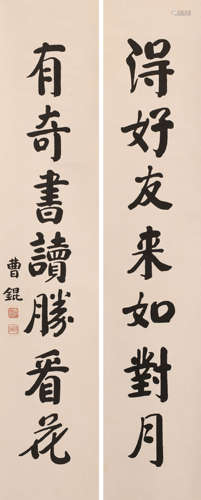 得好友来如對月
有奇書讀勝看花
曹錕